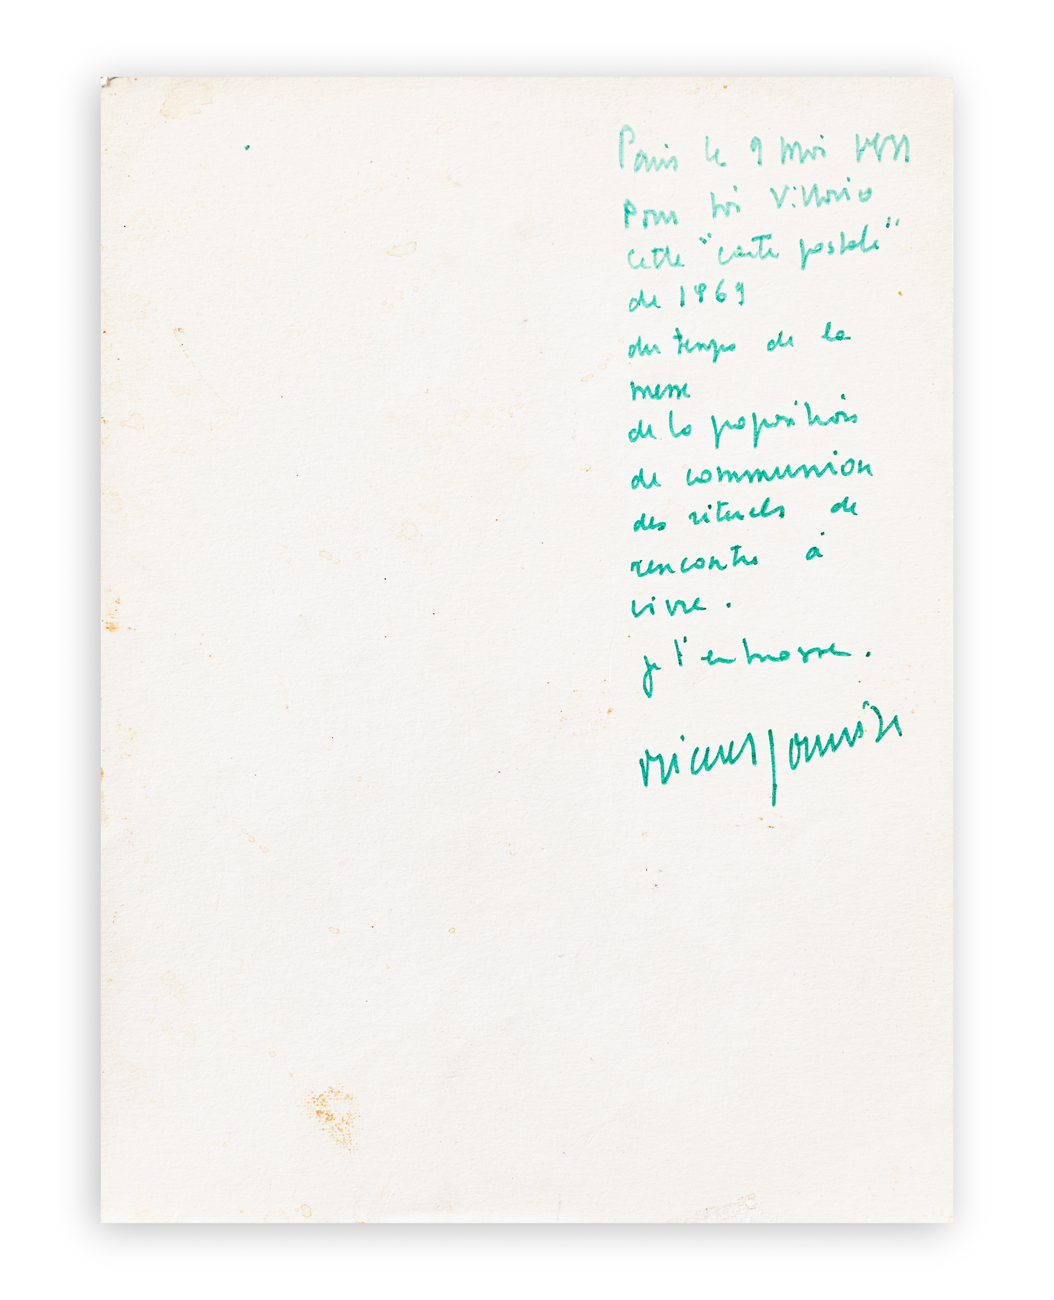 Paris le 9 Mai
Pour toi Vittorio
cette "carte postale"
de 1969
du temps de la
messe
de la proposition
de communion
des rituels de
rencontre à
vivre.
je t'embrasse.
michel journiac